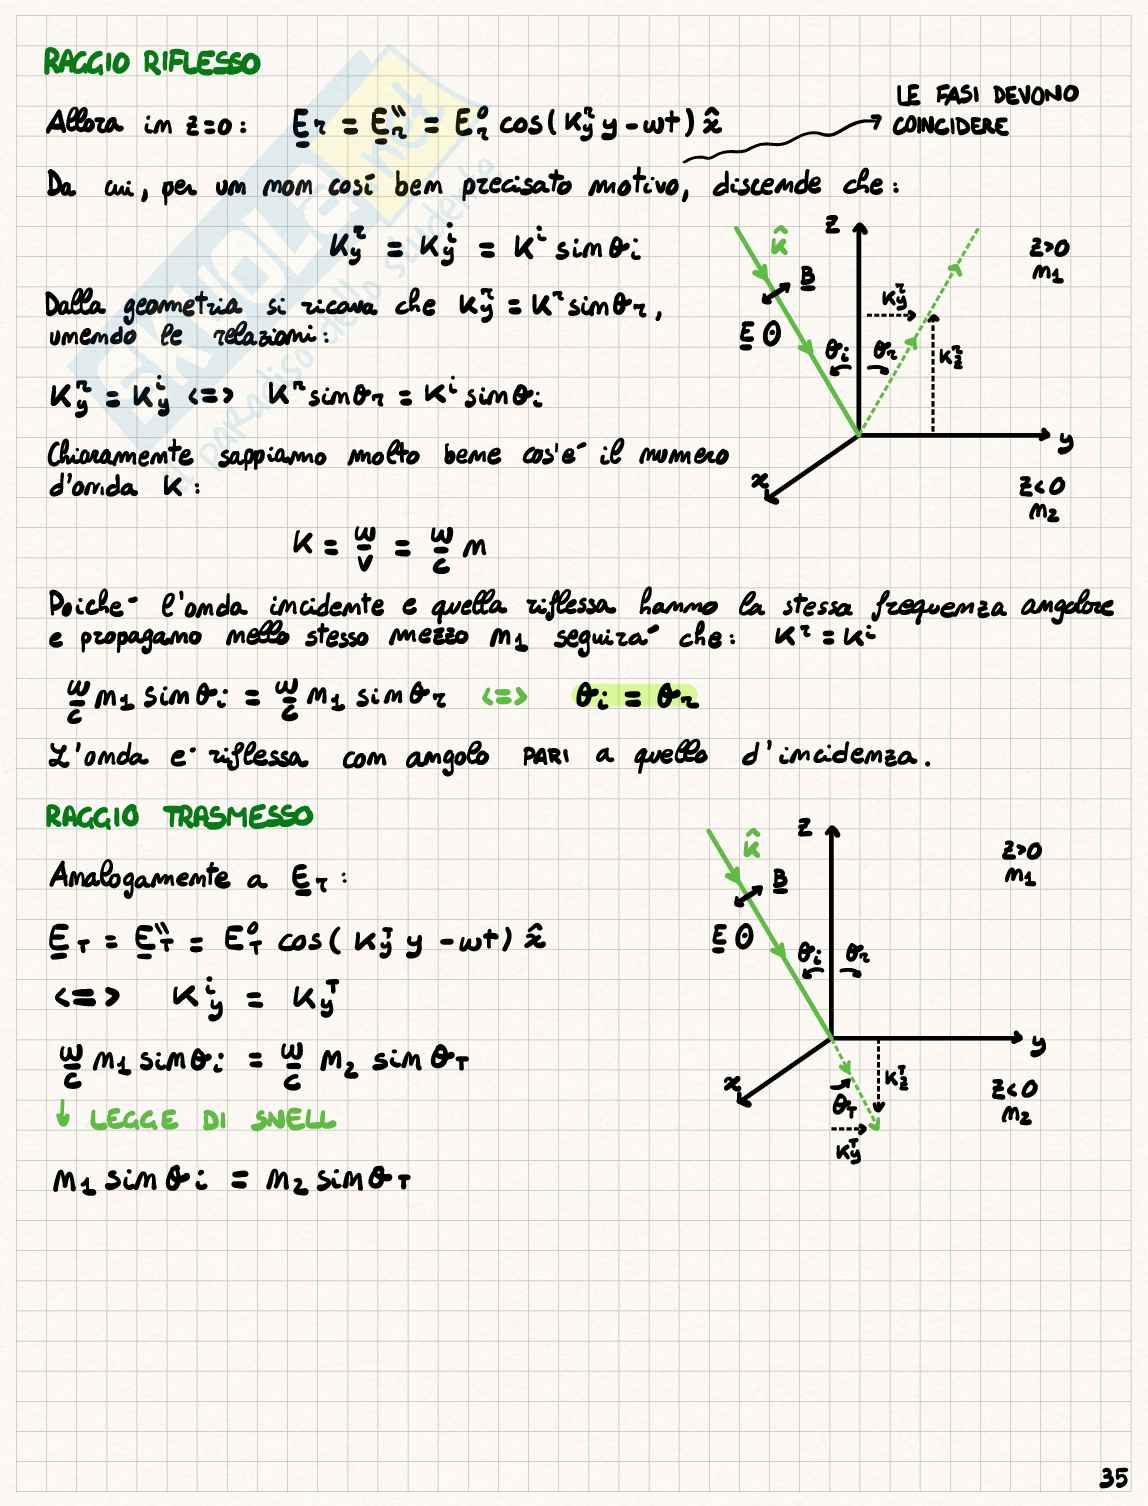 RAGGIO RIFLESSO
LE FASI DEVONO
COINCIDERE
Allora in z=0: E_r = E_r^" = E_r^0 cos(K_y^r y - ωt) x̂
Da cui, per un non così ben precisato motivo, discende che:
K_y^r = K_y^i = K^i sin θi
Dalla geometria si ricava che K_y^r = K^r sin θr,
unendo le relazioni:
K_y^r = K_y^i <=> K^r sin θr = K^i sin θi
Chiaramente sappiamo molto bene cos'è il numero
d'onda K:
K = ω/v = ω/c n
z
k̂
B
E
K_y^r
θi θr
K_z^r
y
x
z>0
n1
z<0
n2
Poiché l'onda incidente e quella riflessa hanno la stessa frequenza angolare
e propagano nello stesso mezzo n1 seguirà che: K^r = K^i
ω/c n1 sin θi = ω/c n1 sin θr <=> θi = θr
L'onda è riflessa con angolo PARI a quello d'incidenza.
RAGGIO TRASMESSO
Analogamente a E_r:
E_T = E_T^" = E_T^0 cos( K_y^T y - ωt) x̂
<=> K_y^i = K_y^T
ω/c n1 sin θi = ω/c n2 sin θT
↓ LEGGE DI SNELL
n1 sin θi = n2 sin θT
z
k̂
B
E
θi θr
y
x
K_z^T
θT
K_y^T
z>0
n1
z<0
n2
35
SKUOLA.net